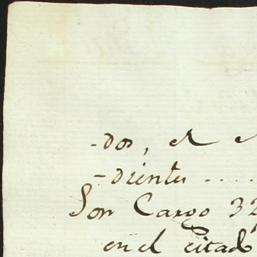 -dos, el
-diente ....
Son Cargo 32
en el Citado